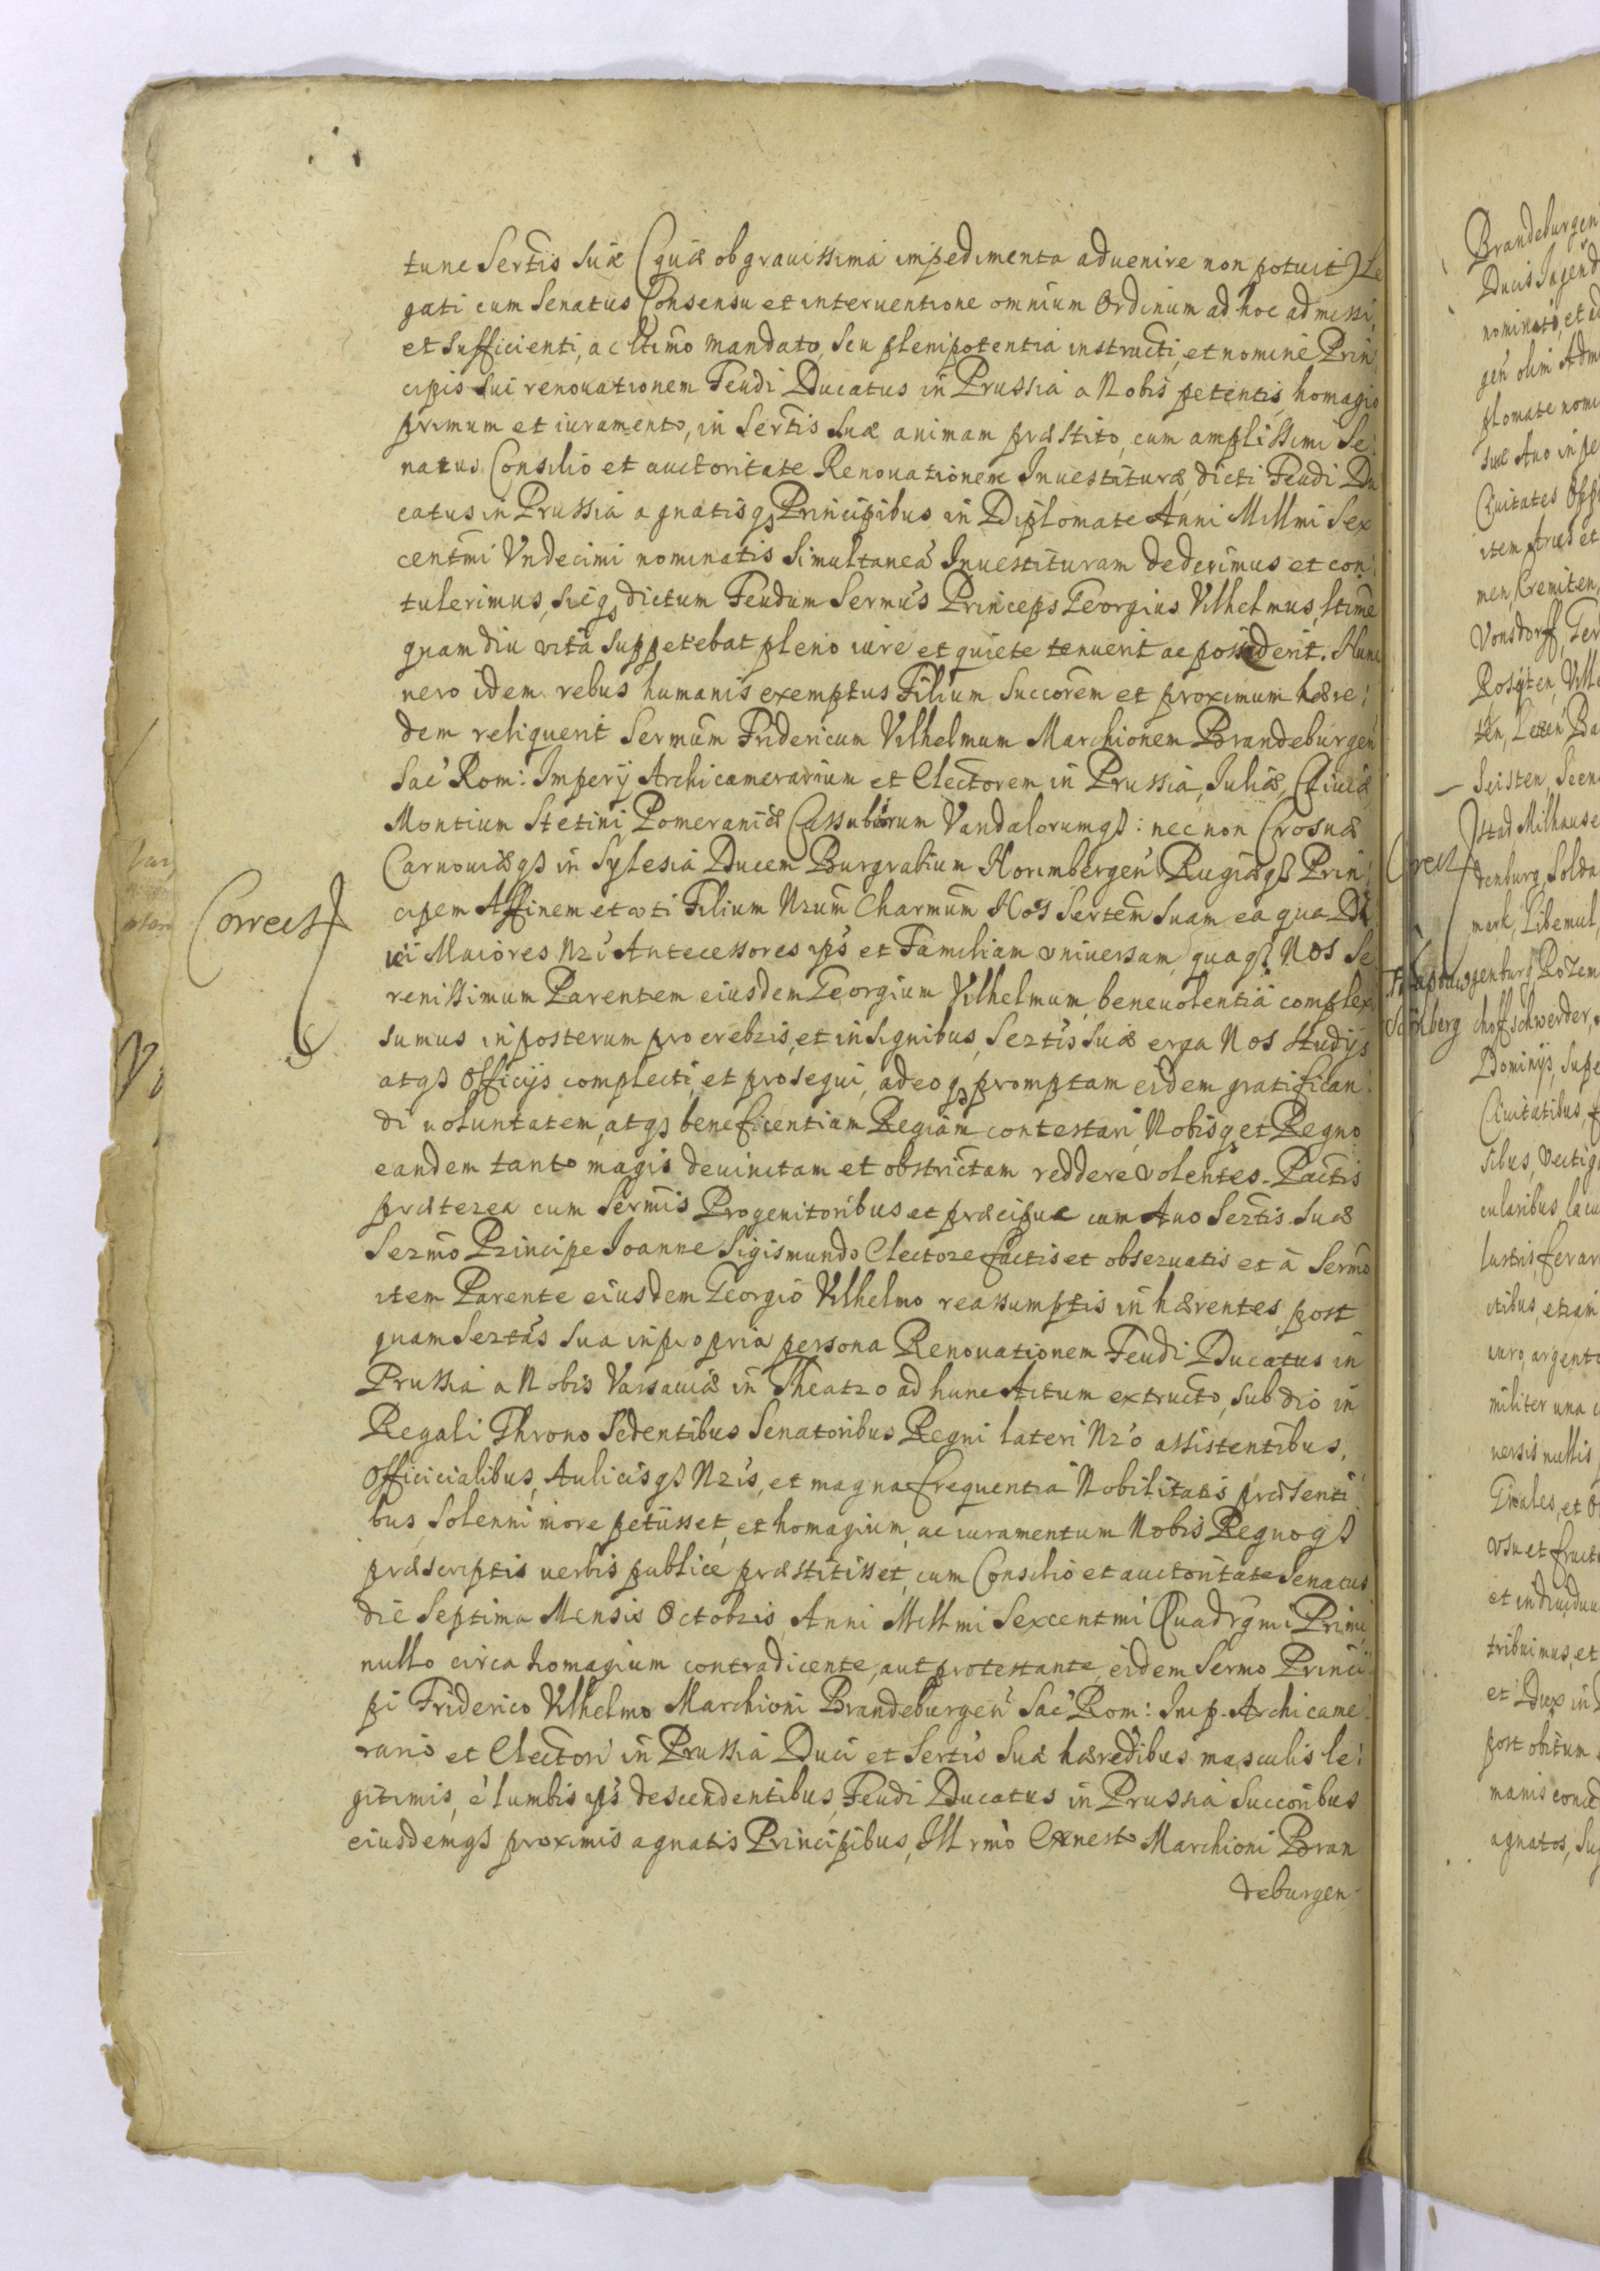 tunc Sertis Suæ (quæ ob grauissima impedimenta aduenire non potuit) Le
gati cum Senatus Consensu et interuentione omnium Ordinum ad hoc admissi,
et Sufficienti, ac ltimo mandato, seu plenipotentia instructi, et nomine Prin
cipis sui renouationem Feudi Ducatus in Prussia a Nobis petentis, homagio
primum et iuramento, in Sertis Suæ animam præstito, cum amplissimi Se:
natus Consilio et auctoritate Renouationem Inuestituræ, dicti Feudi Du
catus in Prussia agnatisq Principibus in Diplomate Anni Millmi Sex
centmi Vndecimi nominatis Simultaneã Inuestituram dederimus et con:
tulerimus, sicq dictum Feudum Sermus Princeps Georgius Vilhelmus, ltime
quam diu vita suppetebat pleno iure et quiete tenuerit ac possederit. Hunc
uero idem rebus humanis exemptus Filium Succorem et proximum hære:
dem reliquerit Sermum Fridericum Vilhelmum Marchionem Brandeburgen
Sac Rom: Impery Archicamerarium et Electorem in Prussia, Juliæ, Cliuiæ,
Montium Stetini, Pomeraniæ Cassubiorum Vandalorumq: nec non Crosnæ
Carnouiæq in Sylesia Ducem Burgrabium Norimbergen Rugiæq Prin:
cipem Affinem et vti Filium Nrum Charmum Nos Sertem Suam ea qua Di
ui Maiores Nri Antecessores yps et Familiam vniuersam, quaq Nos Se
renissimum Parentem eiusdem Georgium Vilhelmum, beneuolentia complex
sumus in posterum pro crebris, et insignibus, Sertis Suæ erga Nos studijs
atq Officijs complecti, et prosequi, adeoq promptam eidem gratifican:
di uoluntatem, atq beneficentiam Regiam contestari, Nobisq et Regno
eandem tanto magis deuinctam et obstrictam reddere volentes. Pactis
præterea cum Sermis Progenitoribus et præcipue cum Auo Sertis Suæ
Sermo Principe Joanne Sigismundo Electore factis et obseruatis et à Sermo
item Parente eiusdem Georgio Vilhelmo reassumptis inhærentes, post
quam Sertas Sua in propria persona Renouationem Feudi Ducatus in
Prussia a Nobis Varsauiæ in Theatro ad hunc Actum extructo, sub dio in
Regali Throno Sedentibus Senatoribus Regni lateri Nro assistentibus,
Officicialibus, Aulicisq Nris, et magna frequentia Nobilitatis præsenti
bus, solenni more petiisset, et homagium, ac iuramentum Nobis Regnoq
præscriptis uerbis publice præstitisset, cum Consilio et auctoritate Senatus
die Septima Mensis Octobris Anni Millmi Sexcentmi Quadrgmi Primi,
nullo circa homagium contradicente, aut protestante, eidem Sermo Princi:
pi Friderico Vilhelmo Marchioni Brandeburgen Sac Rom: Imp. Archicame:
rario et Electori in Prussia Duci et Sertis Suæ hæredibus masculis le:
gitimis, è lumbis yps descendentibus, Feudi Ducatus in Prussia Succoribus
eiusdemq proximis agnatis Principibus, Illrmo Ernesto Marchioni Bran
deburgen
Correct
V.
Brandeburgen
Ducis Jagend
nominato, et ad
gen olim Adm
plomate nomi
suæ Auo in pe
Ciuitates Opp
item Arces et
men, Cremiten,
Vonsdorff, Ger
Rosyten, Ville
ten, Lezen Ba
Seisten, Seen
stad Milhause
denburg, Solda
mark, Libemul,
genburg Rozem
choffschwerder,
Dominijs, supe
Ciuitatibus,
sibus, vectig
cularibus lacu
lustris, ferar
itibus, etiam
auro, argento
militer una c
uersis nullis
Gnales, et O
vsu et fructu
et indiuiduu
tribuimus, et
et Dux in
post obitum
manis conced
agnatos, Su